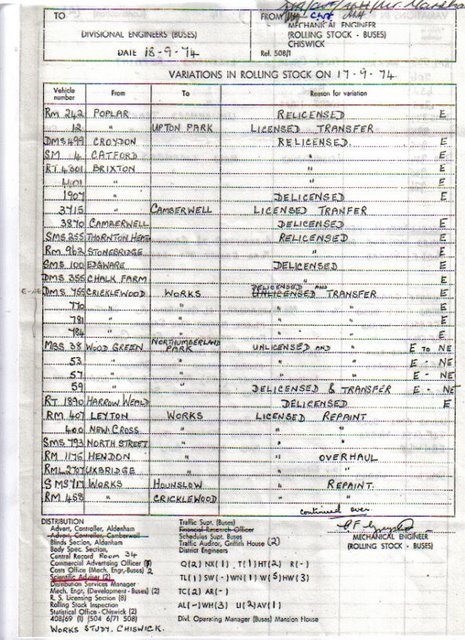 TO
FROM
MECHANICAL ENGINEER
(ROLLING STOCK - BUSES)
CHISWICK
DIVISIONAL ENGINEERS (BUSES)
DATE 18-9-74
Ref. 508/1
VARIATIONS IN ROLLING STOCK ON 17-9-74
Vehicle number From To Reason for variation
RM 242 POPLAR RELICENSED E
12 " UPTON PARK LICENSED TRANSFER E
DMS 499 CROYDON RELICENSED. E
SM 4 CATFORD " E
RT 4301 BRIXTON " E
" " E
1907 " DELICENSED E
3715 " CAMBERWELL LICENSED TRANFER E
3870 CAMBERWELL DELICENSED E
SMS 255 THORNTON HEATH RELICENSED E
RM 962 STONEBRIDGE " E
SMS 100 EDGWARE DELICENSED E
DMS 355 CHALK FARM " E
DMS 755 CRICKLEWOOD WORKS DELICENSED AND UNLICENSED TRANSFER E
770 " " " " E
781 " " " " E
784 " " " " E
MBS 38 WOOD GREEN NORTHUMBERLAND PARK UNLICENSED AND " E TO NE
53 " " " " E - NE
57 " " " " E - NE
59 " " DELICENSED & TRANSFER E - NE
RT 1890 HARROW WEALD DELICENSED E
RM 407 LEYTON WORKS LICENSED REPAINT
400 NEW CROSS " " "
SMS 793 NORTH STREET " " "
RM 1176 HENDON " " OVERHAUL
RML 2707 UXBRIDGE " " "
SMS 717 WORKS HOUNSLOW " REPAINT.
RM 468 " CRICKLEWOOD " "
continued over
DISTRIBUTION
Advert, Controller, Aldenham
Advert, Controller, Camberwell
Blinds Section, Aldenham
Body Spec. Section,
Central Record Room 34
Commercial Advertising Officer
Costs Office (Mech. Engr.) 2
Scientific Adviser (2)
Distribution Services Manager
Mech. Engr. (Development - Buses) (2)
R. S. Licensing Section (8)
Rolling Stock Inspection
Statistical Office - Chiswick (2)
408/69 (1) (504 6/71 508)
WORKS STUDY. CHISWICK.
Traffic Supt. (Buses)
Financial Research Officer
Schedules Supt. Buses
Traffic Auditor, Griffith House (2)
District Engineers
Q(2) NX(1), T(1) HT(2) R(-)
TL(1) SW(-) WN(1) W(5) HW(3)
TC(2) AR(-)
AL(-) WH(3) U(2) AV(1)
Divl. Operating Manager (Buses) Mansion House
MECHANICAL ENGINEER
(ROLLING STOCK - BUSES)